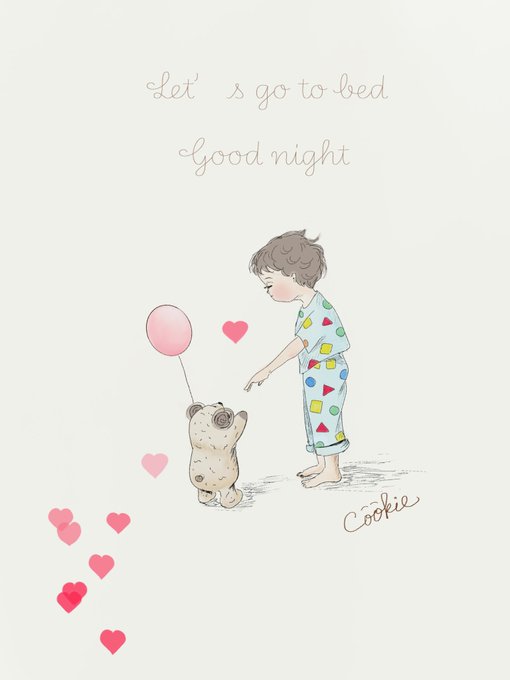 Let's go to bed
Good night
Cookie